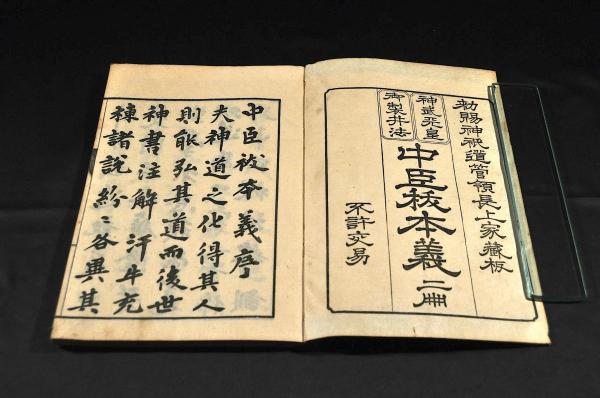 勅賜神祇道管領長上家藏板
神武天皇
御製井法
中臣祓本義 二冊
不許交易
中臣祓本義序
夫神道之化得其人
則能弘其道而後世
神書注解汗牛充
棟諸說紛〻各異其